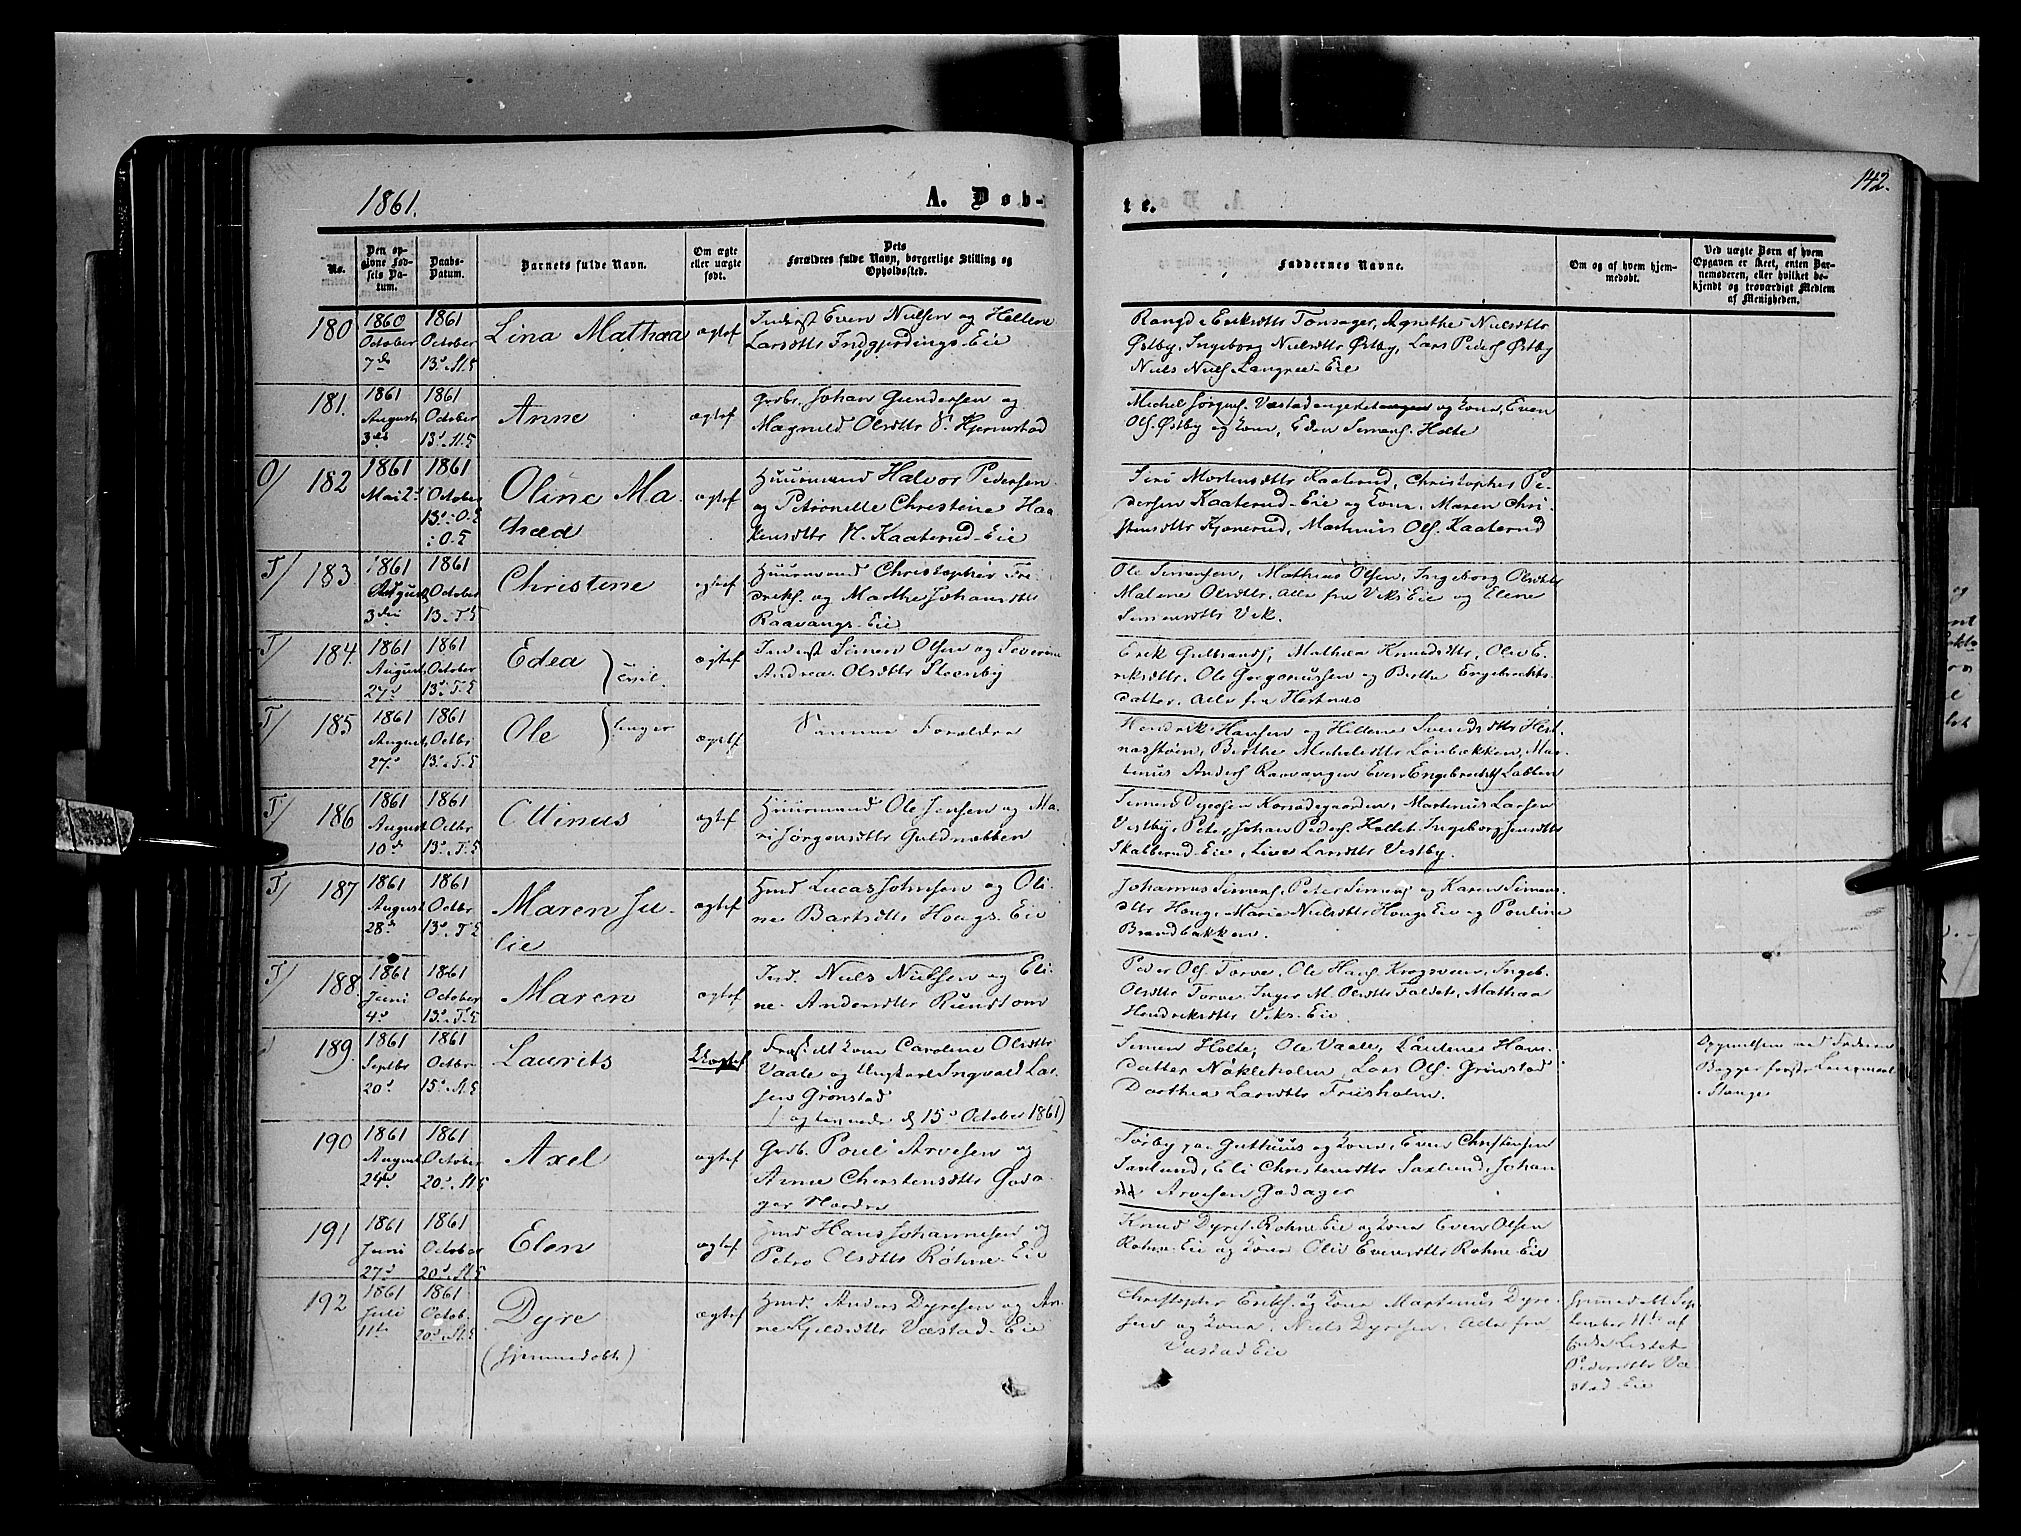 1861.
A. Døb-
te.
142.
No.
Den op-
givne Fød-
sels Da-
tum.
Daabs-
Datum.
Barnets fulde Navn.
Om ægte
eller uægte
født.
Dets
Forældres fulde Navn, borgerlige Stilling og
Opholdssted.
Faddernes Navne.
Om og af hvem hjem-
medøbt.
Ved uægte Børn af hvem
Opgaven er skeet, enten Bar-
nemoderen, eller hvilket be-
kjendt og troværdigt Medlem
af Menigheden.
180
1860
October
7de
1861
October
13d St. E
Lina Mathæa
ægtef
Inderst Even Nielsen og Hellene
Larsdttr Indgjerdings-Eie
Eriksdttr Tonsager, Agnethe Nielsdttr
Østby, Ingeborg Nielsdttr Østby, Lars Peders Østby
Niels Niels Langrei-Eie
181.
1861
August
3die
1861
October
13d St. E
Anne
ægtef
Grdbr. Johan Gundersen og
Magnild Olsdttr S. Hjernstad
Michel Jørgens og Kone, Even
Ols. Østby og Kone, Simens. Holte
O/
182
1861
Mai 2d
1861
October
13d O. E
: O. E
Oline Ma-
thæa
ægtef
Huusmand Halvor Pedersen
og Petronelle Christine Haa-
kensdttr N. Kaaterud-Eie
Siri Mortensdttr Kaaterud, Christopher Pe-
dersen Kaaterud-Eie og Kone, Maren Chri-
stensdttr Kjonerud, Martinus Ols. Kaaterud
T/
183
1861
August
3die
1861
October
13. T. E
Christine
ægtef
Huusmand Christopher Fre-
driks. og Marthe Johansdttr
Raavangs-Eie
Ole Simensen, Mathias Olsen, Ingeborg Olsdttr
Malene Olsdttr. Alle fra Viks Eie og Elene
Simensdttr Vik.
T/
184.
1861
August
27d
1861
October
13d T. E
Edea
tvil-
ægtef
Inderst Simen Olsen og Severine
Andrea Olsdttr Steenby
Erik Gulbrands, Mathea Knudsdttr, Olea E-
riksdttr, Ole Gregoriussen og Berthe Engebrechts
datter, Alle fra Hertnæs
T/
185
1861
August
27d
1861
Octbr
13d T. E
Ole
linger
ægtef
Samme Forældre
Hendrik Hansen og Hellene Svendsdttr Hert-
næsstøen, Berthe Michelsdttr Lønbækken, Mar-
tinus Anders Raavangen Even Engebrechts Labben
T/
186
1861
August
10d
1861
Octbr
13d T. E
Ottinus
ægtef
Huusmand Ole Jensen og Ma-
ri Jørgensdttr Guldnæbben
Simen Dyresen Korsødegaarden, Martinus Larsen
Vestby, Peter Johan Peders. Holtet, Ingeborg Jensdttr
Skatterud Eie, Live Larsdttr Vestby.
T/
187
1861
August
28d
1861
Octbr
13d T. E
Maren Ju-
lie
ægtef
Hmd Lucas Johnsen og Oli-
ne Bartsdttr Hougs-Eie
Johannes Simens, Peter Simens og Karen Simens-
dttr Houg, Marie Nielsdttr Hougs Eie og Pauline
Brandbækken.
T/
188
1861
Juni
4d
1861
October
13d T. E
Maren
ægtef
Ind. Niels Nielsen og Eli-
ne Andersdttr Rundtom
Peder Ols Torve, Ole Hans Krogsveen, Ingeb.
Olsdttr Torve, Inger M. Olsdttr Faldet, Mathæa
Hendriksdttr Viks-Eie
189.
1861
Septbr
20d
1861
Octbr
15d St. E
Laurits
ægtef
Frask. Kone Caroline Olsdttr
Vaale og Ungkarl Ingvald Lar-
sen Grønstad
(ægteviede d 15d October 1861)
Simen Holte, Ole Vaale, Hans-
datter Nækleholm, Lars Ols. Grønstad
Dorthea Larsdttr Friisholm.
Faderen
Stange
190
1861
August
24de
1861
October
20d St. E
Axel
ægtef
Grdb. Poul Arvesen og
Anne Christensdttr Goda-
ger Nordre
Guthuus og Kone, Even Christensen
Saxlund, Eli Christensdttr Saxlund, Johan
Arvesen Godager
191
1861
Juni
27d
1861
October
20d St. E
Elen
ægtef
Hmd Hans Johannesen og
Petro Olsdttr Rohne-Eie
Knud Dyres. Rohne Eie og Kone Even Olsen
Rohne-Eie og Kone Oliv Evensdttr Rohne-Eie
192
1861
Juli
11te
1861
Octob.
20d St. E
Dyre
(hjemmedøbt)
ægtef
Hmd. Anders Dyresen og An-
ne Kjeldsdttr Væstad-Eie
Christopher Eriks. og Kone Martinus Dyre-
sen og Kone, Niels Dyresen. Alle fra
Væstad Eie
hjemmedøbt Sep-
tember 11te af
Enke Lisbet
Pedersdttr Væ-
stad-Eie